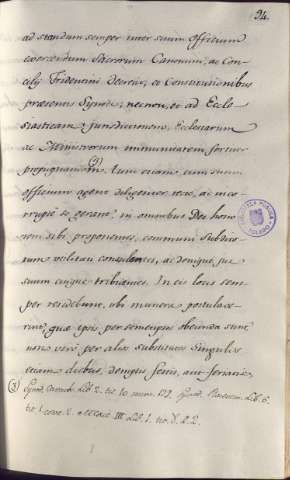 94.
ad standum semper inter suum Officium
exercendum Sacrorum Canonum, ac Con-
cilij Tridentini decretis, et Constitutionibus
praesentis Synodi; necnon, et ad Eccle-
siasticam jurisdictionem, Ecclesiarum
ac Ministrorum immunitatem fortiter
propugnandam. (3) Tum etiam cum suum
officium agent diligenter, recte, ac incor-
rupte se gerant: in omnibus Dei hono-
rem sibi proponentes, communi Subdito-
rum utilitati consulentes, ac denique jus
suum cuique tribuentes. In eis locis sem-
per residebunt, ubi munera postulave-
rint, quae ipsis per semetipsos obeunda sunt
non vero per alios substitutos singulis
etiam diebus, demptis festis, aut feriatis,
(3) Synod. Lib. 2. tit. 10. num. 177. Synod. Lib. 6.
tit. 1. Lib. 1. tit. 8. 2.
BIBLIOTECA PUBLICA
TOLEDO